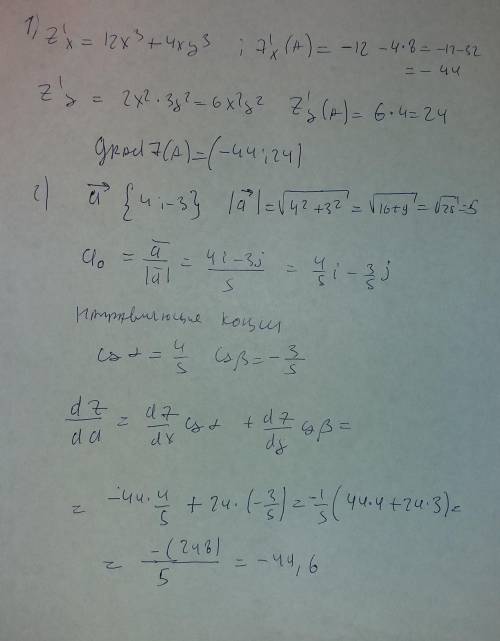 1) z'x = 12x³ + 4xy³ ; z'x (A) = -12 - 4·8 = -12-32
= - 44
z'y = 2x²·3y² = 6x²y² z'y (A) = 6·4 = 24
grad z(A) = (-44; 24)
2) a {4; -3} |a| = √4²+3² = √16+9 = √25 = 5
a₀ = a/|a| = (4i - 3j)/5 = 4/5 i - 3/5 j
Направляющие косин
cos α = 4/5 cos β = - 3/5
dz/da = dz/dx cos α + dz/dy cos β =
= -44·4/5 + 24·(-3/5) = -1/5 (44·4 + 24·3) =
= -(248)/5 = -44,6